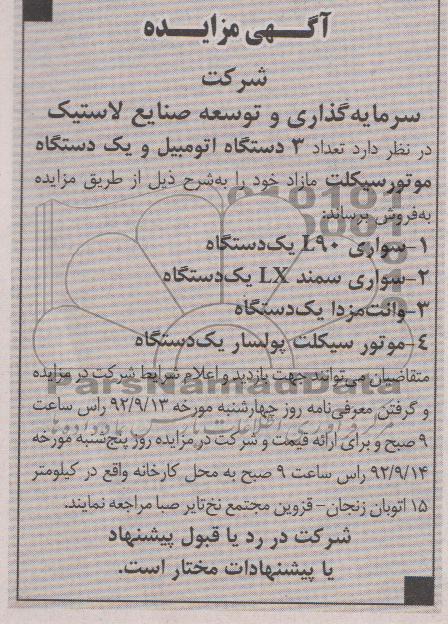 آگهی مزایده
شرکت
سرمایه‌گذاری و توسعه صنایع لاستیک
در نظر دارد تعداد ۳ دستگاه اتومبیل و یک دستگاه
موتورسیکلت مازاد خود را به‌شرح ذیل از طریق مزایده
به‌فروش برساند:
۱-سواری L۹۰ یک‌دستگاه
۲-سواری سمند LX یک‌دستگاه
۳-وانت‌مزدا یک‌دستگاه
۴-موتور سیکلت پولسار یک‌دستگاه
متقاضیان می‌توانند جهت بازدید و اعلام شرایط شرکت در مزایده
ParsNamadData
و گرفتن معرفی‌نامه روز چهارشنبه مورخه ۹۲/۹/۱۳ راس ساعت
۹ صبح و برای ارائه قیمت و شرکت در مزایده روز پنج‌شنبه مورخه
۹۲/۹/۱۴ راس ساعت ۹ صبح به محل کارخانه واقع در کیلومتر
۱۵ اتوبان زنجان- قزوین مجتمع نخ‌تایر صبا مراجعه نمایند.
شرکت در رد یا قبول پیشنهاد
یا پیشنهادات مختار است.